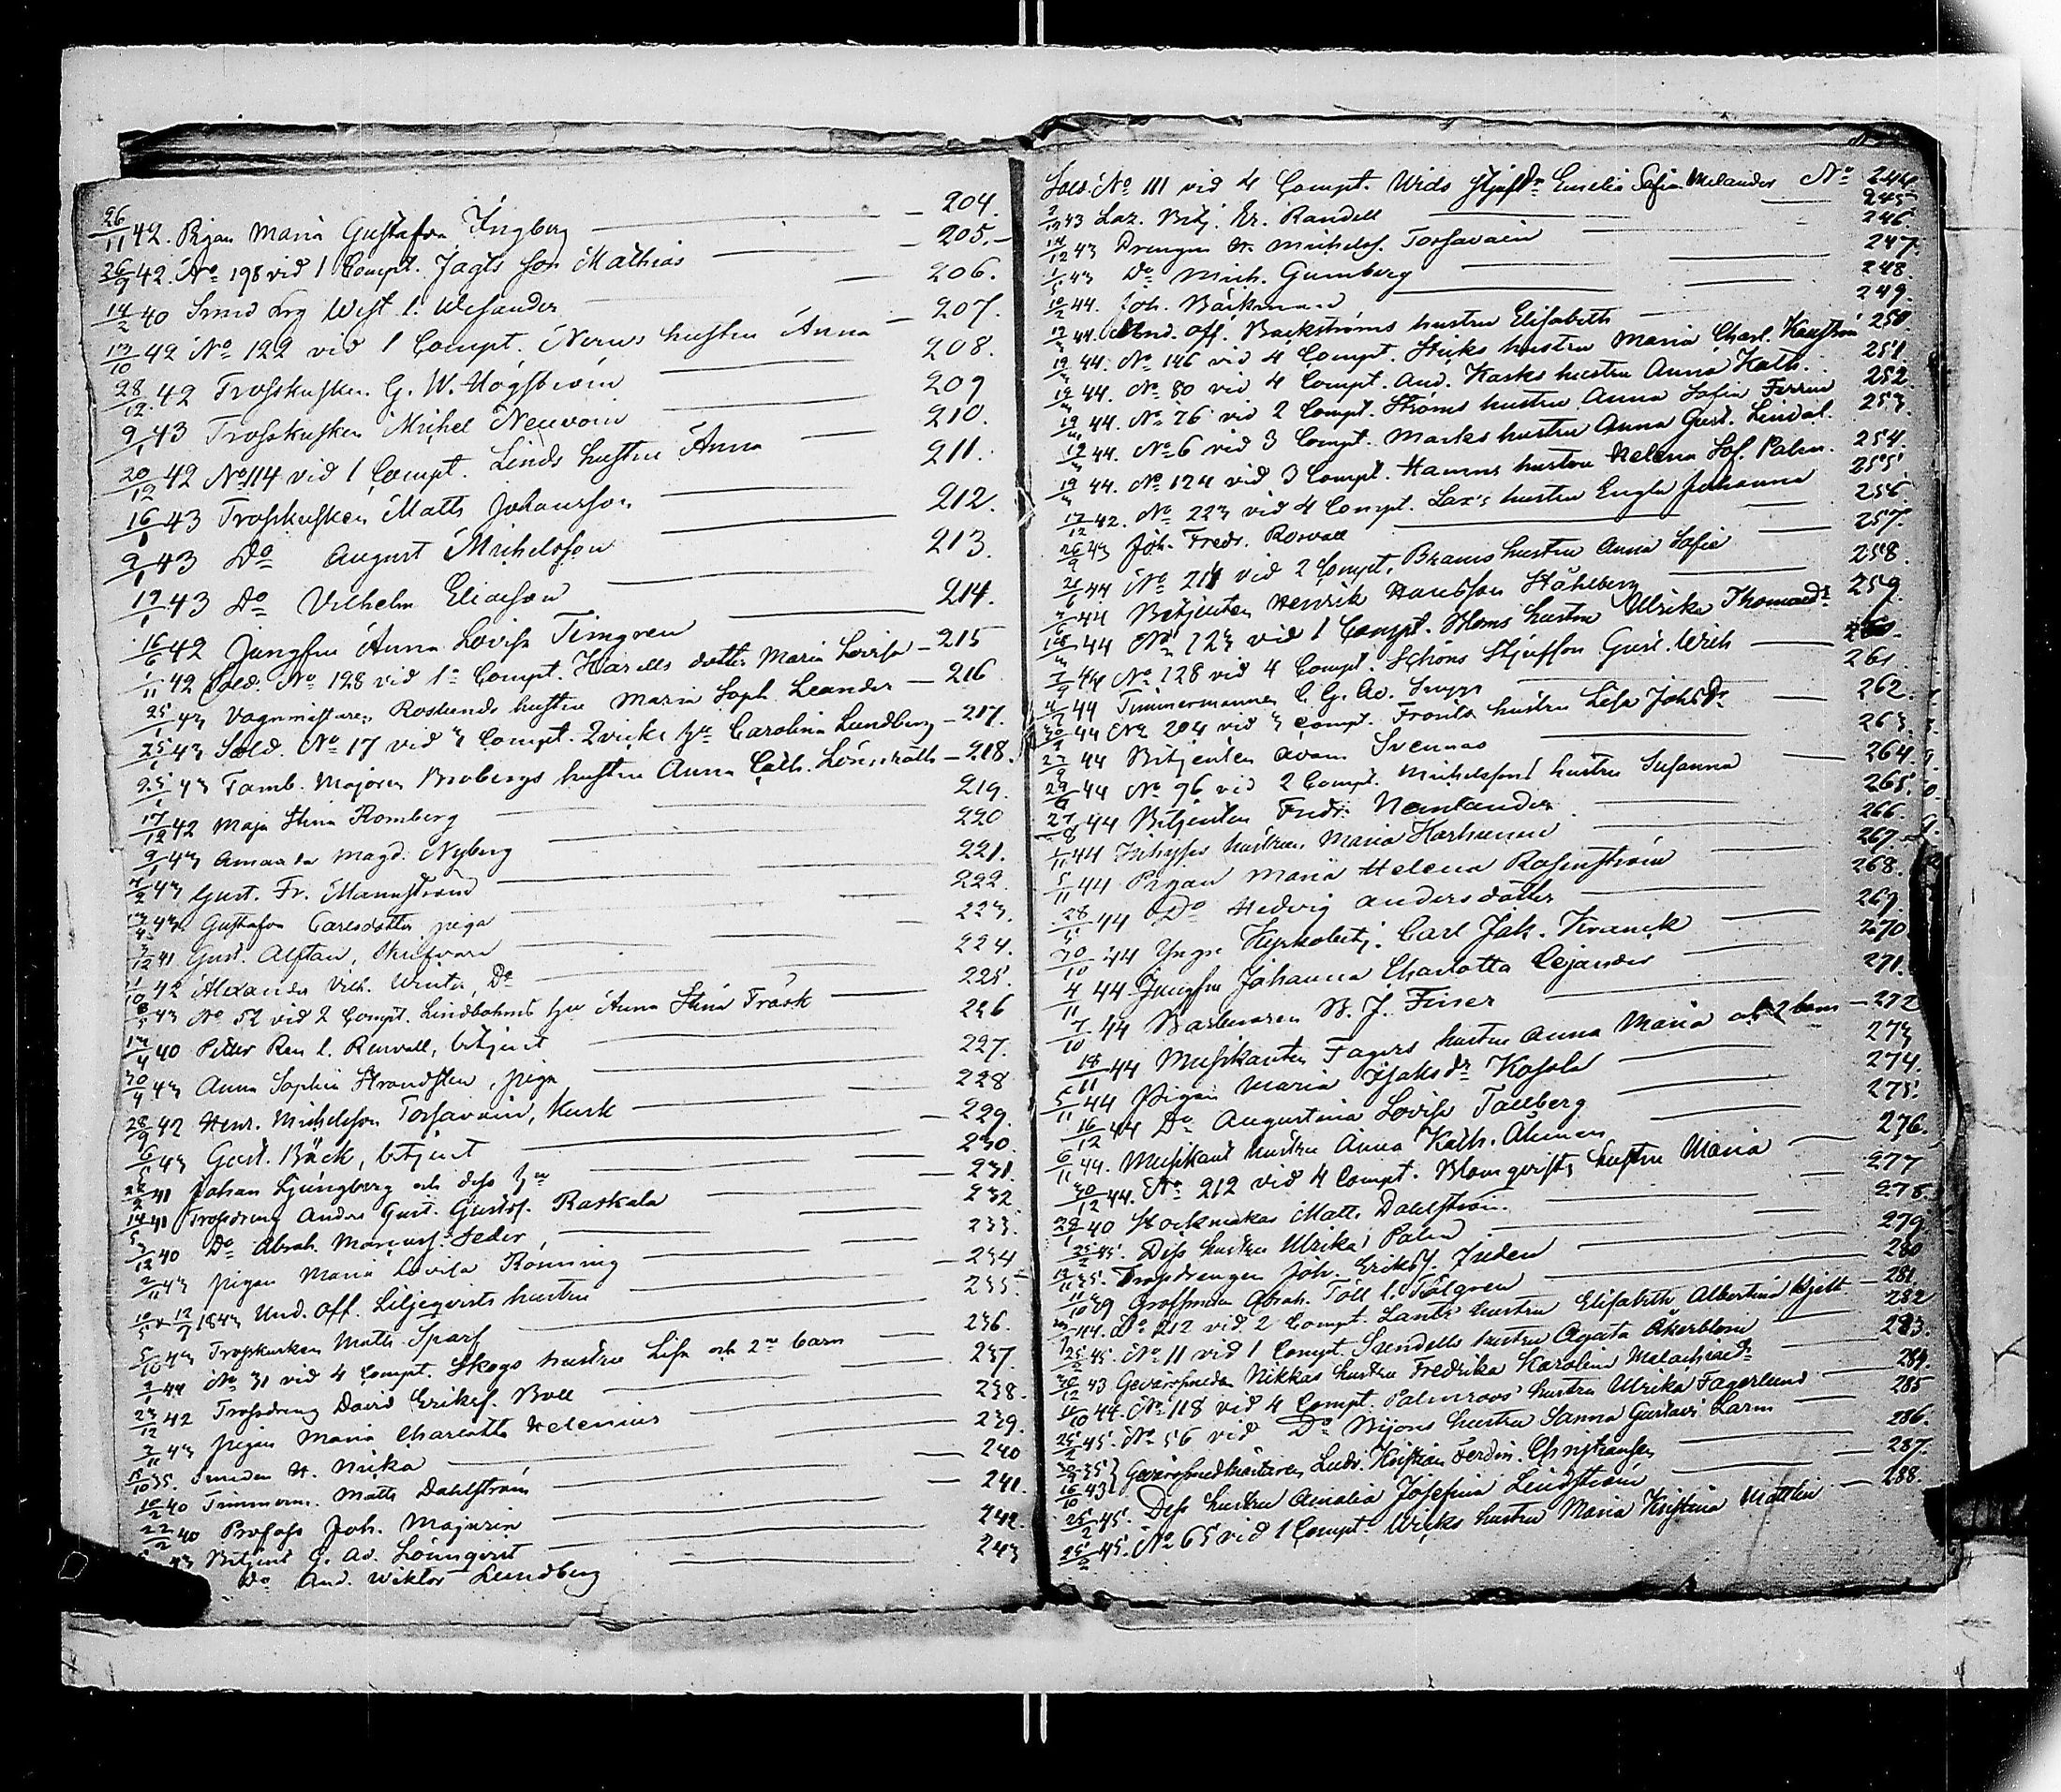 26/11 42. Pigan Maria Gustafva Ingberg — 204.
26/9 42. No 198 vid 1 Compt. Jagts son Mathias — 205.
14/2 40 Smed Lrg West l. Wesander — 206.
13/10 42 No 122 vid 1 Compt. hustru Anna — 207.
28/12 42 Trosskusken G. W. Högström — 208.
9/1 43 Trosskusken Michel Neuvoin — 209
20/12 42 No 114 vid 1 Compt. Linds hustru Anna — 210.
16/1 43 Trosskusken Matts Johansson — 211.
9/1 43 Do August Michelsson — 212.
19/1 43 Do Vilhelm Eliasson — 213.
16/6 42 Jungfru Anna Lovisa Timgren — 214.
1/11 42 Sold. No 128 vid 1a Compt. Karells dotter Maria Lovisa — 215
25/1 43 Vagnmästaren Roslunds hustru Maria Soph. Leander — 216
25/1 43 Sold. No 17 vid 3 Compt. Qvicks hu Carolina Lundberg — 217.
25/1 43 Tamb. Majoren Brobergs hustru Anna Cath. Lönnroth — 218.
17/12 42 Maja Stina Romberg — 219.
9/1 43 Amanda Magd. Nyberg — 220
4/2 43 Gust. Fr. Mannström — 221.
13/4 43 Gustafva Carlsdotter piga — 222.
3/12 41 Gust. Alftan, — 223.
1/10 42 Alexander Vilh. Winter Do — 224.
8/5 43 No 52 vid 2 Compt. Lindbohms hu Anna Stina Träsk — 225.
13/4 40 Petter Ren l. Renvall, betjent — 226
30/4 43 Anna Sophia Strandsten, piga — 227.
28/9 42 Henr. Michelsson Torsavain, kusk — 228
6/5 43 Gust. Bäck, betjent — 229.
22/2 41 Johan Ljungberg och dess hu — 230.
14/5 41 Trossdreng Anders Gust. Gustafs. Raskala — 231.
3/12 40 Do Abrah. Seder — 232.
2/11 43 pigan Maria Lovisa Rönning — 233.
10/5 & 12/7 1843 Und. off. Liljeqvists hustru — 234
5/10 43 Trosskusken Matts Sparf — 235.
9/1 44 No 31 vid 4 Compt. Skogs hustru Lisa och 2ne barn — 236.
23/12 42 Trossdreng David Eriks. Boll — 237.
3/11 43 pigan Maria Charlotta Helenius — 238.
18/10 35. Smeden H. Nicka — 239.
10/2 40 Timmerm. Matts Dahlström — 240
22/2 40 Profoss Joh. Majurin — 241.
43 Betjent G. Ad. Lönnqvist — 242.
Do And. Wiktor Lundberg — 243
Sold. No 111 vid 4 Compt. Wids Emelia Sofia Melander No 244.
2/12 43 Laz. Betj. Er. Randell — 245
14/12 43 Drengen H. Michelss. Torsavain — 246.
1/5 43 Do Mich. Gumberg — 247.
10/2 44. Joh. Bäckman — 248.
19/3 44. Und. off. Backströms hustru Elisabeth — 249.
19/3 44. No 146 vid 4 Compt. hustru Maria Charl. 250
19/3 44. No 80 vid 4 Compt. And. Karks hustru Anna Kath. 251.
19/3 44. No 76 vid 2 Compt. Ströms hustru Anna Sofia 252.
19/3 44. No 6 vid 3 Compt. Marks hustru Anna Gust. Lindal. 253.
19/3 44. No 124 vid 3 Compt. Hamns hustru Helena Sof. Palm. 254.
17/12 42. No 223 vid 4 Compt. Lax's hustru Engla Johanna — 255.
26/9 43 Joh. Fredr. Rosvall — 256.
21/6 44 No 214 vid 2 Compt. Brams hustru Anna Sofia — 257.
3/6 44 Betjenten Henrik Hansson Ståhlberg — 258.
18/3 44 No 123 vid 1 Compt. Stoms hustru Ulrika Thomasdr 259.
7/9 44 No 128 vid 4 Compt. Schöns Styfson Gust. Wilh — 260.
4/7 44 Timmermannen C. G. Ad. — 261
30/9 44 No 204 vid 3 Compt. hustru Lisa Johsdr — 262.
23/9 44 Betjenten Adam Svennas — 263.
29/9 44 No 96 vid 2 Compt. Michelsons hustru Susanna — 264.
27/8 44 Betjenten Fredr. Nenlander — 265.
1/11 44 hustru Maria Karhunen — 266.
5/11 44 Pigan Maria Helena Rosenström — 267.
28/5 44 Do Hedvig Andersdotter — 268.
30/10 44 Yngr. Kyrkobetj. Carl Jak. Kranck — 269
4/11 44 Jungfru Johanna Charlotta Cejander — 270
7/10 44 Barberaren B. J. Finer — 271.
18/11 44 Musikanten Fagers hustru Anna Maria och 2 barn — 272
5/11 44 Pigan Maria Isaksdr Kosola — 273
16/12 44 Do Augustina Lovisa Tallberg — 274.
6/11 44. Musikant hustru Anna Kath. Åhman — 275.
30/12 44. No 212 vid 4 Compt. Blomqvists hustru Maria — 276.
29/1 40 Stockmakar Matts Dahlström. — 277
25/2 45. Dess hustru Ulrika Palm — 278.
13/11 35. Trossdrengen Joh. Eriks. Juden — 279
11/10 39 Grofsmeden Abrah. Töll l. Tölgren — 280
3/7 44. No 212 vid 2 Compt. Lants hustru Elisabeth Albertina Hjelt — 281.
25/2 45. No 11 vid 1 Compt. Sundells hustru Agata Åkerblom — 282
30/12 43 Gevärssmeden Nikkas hustru Fredrika Karolina Malachiadr — 283.
11/10 44. No 118 vid 4 Compt. Palmroos' hustru Ulrika Fagerlund — 284.
25/2 45. No 56 vid Do Bijons hustru Sanna Gustavi Larm — 285
30/9 35 } Gevärssmedmästaren Ludv. Kristian Ferdin. Christiansen — 286.
16/10 43
25/2 45. Dess hustru Amalia Josefina Lindström — 287.
25/2 45. No 65 vid 1 Compt. Wicks hustru Maria Kristina Mattlin — 288.